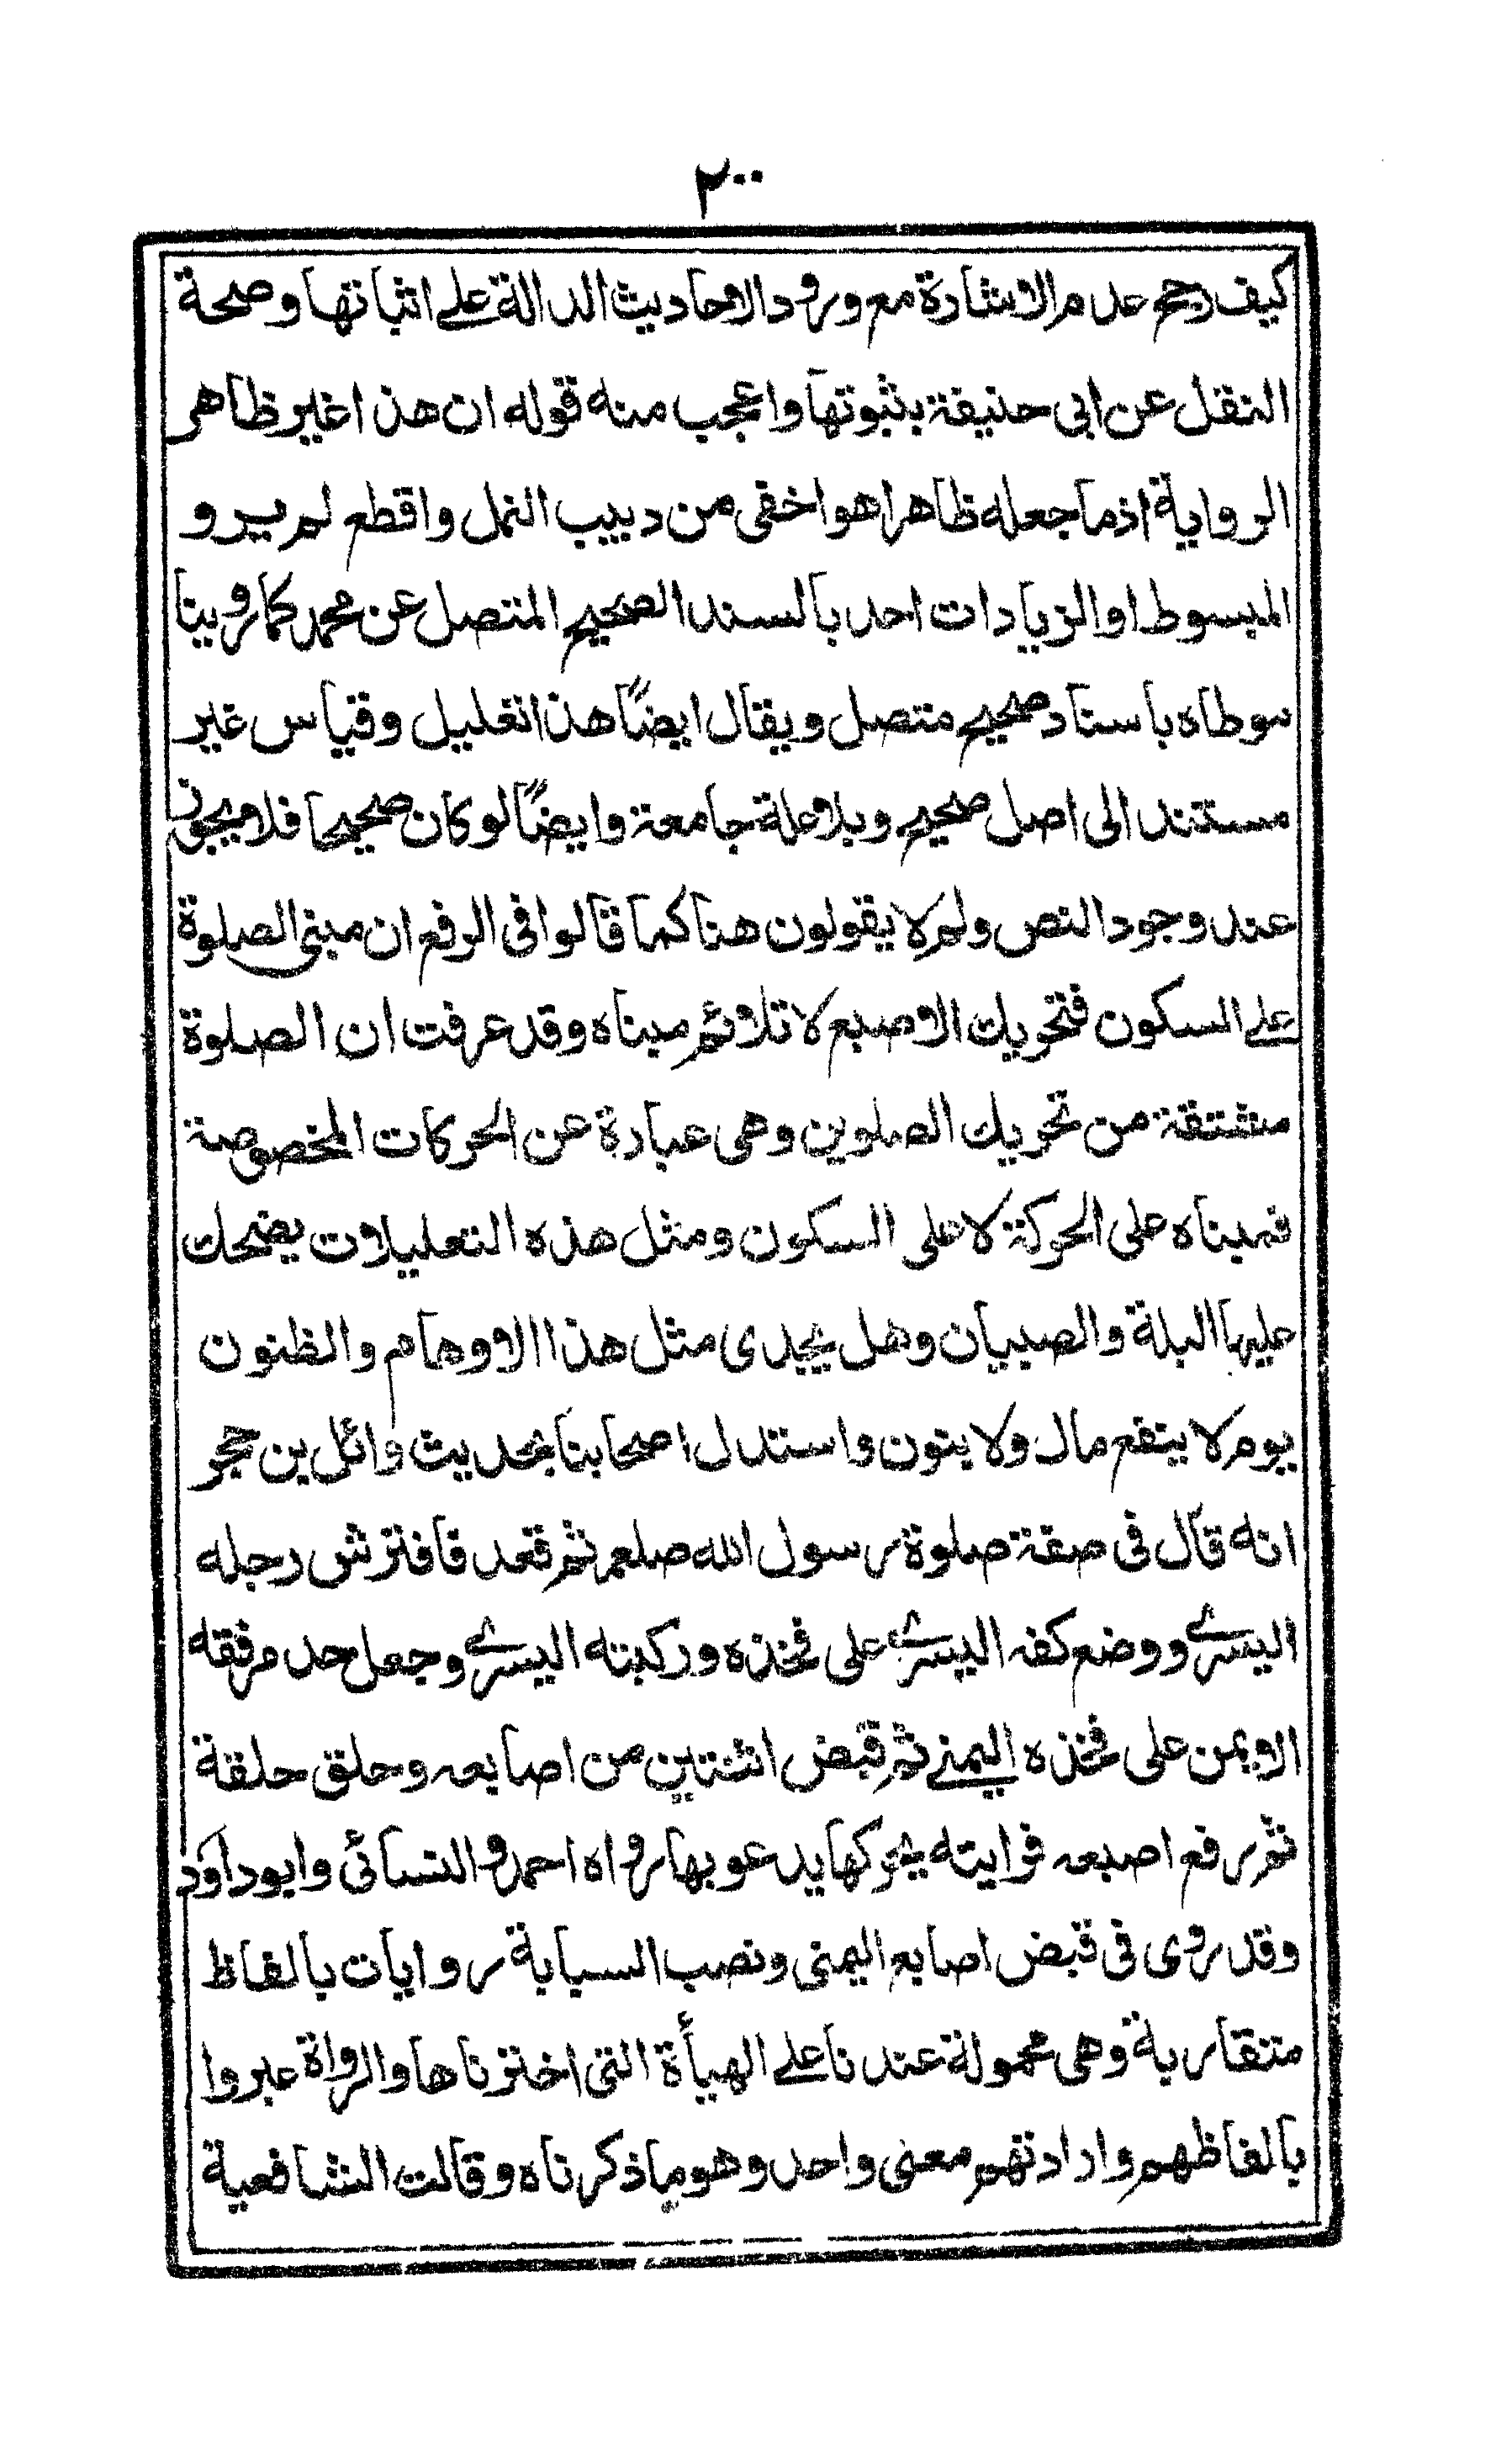 ٢٠٠
كيف رجح عدم الاشارة مع ورود الاحاديث الدالة على اثباتها وصحة
النقل عن ابى حنيفة بثبوتها واعجب منه قوله ان هذا غير ظاهر
الرواية اذ ما جعله ظاهرا هو اخفى من دبيب النمل واقطع لم يرو
المبسوط او الزيادات احد بالسند الصحيح المتصل عن محمد كما روينا
موطاه باسناد صحيح متصل ويقال ايضاً هذا تعليل وقياس غير
مستند الى اصل صحيح وبلا علة جامعة وايضاً لو كان صحيحا فلا يجوز
عند وجود النص ولم لا يقولون هنا كما قالوا فى الرفع ان مبنى الصلوة
على السكون فتحريك الاصبع لا تلائم مبناه وقد عرفت ان الصلوة
مشتقة من تحريك الصلوين وهى عبارة عن الحركات المخصوصة
فمبناه على الحركة لا على السكون ومثل هذه التعليلات يضحك
عليها البلة والصبيان وهل يجدى مثل هذا الاوهام والظنون
يوم لا ينفع مال ولا بنون واستدل اصحابنا بحديث وائل بن حجر
انه قال فى صفة صلوة رسول الله صلعم ثم قعد فافترش رجله
اليسرى ووضع كفه اليسرى على فخذه وركبته اليسرى وجعل حد مرفقه
الايمن على فخذه اليمنى ثم قبض اثنتين من اصابعه وحلق حلقة
ثم رفع اصبعه فرايته يحركها يدعو بها رواه احمد والنسائى وابوداود
وقد روى فى قبض اصابع اليمنى ونصب السبابة روايات بالفاظ
متقاربة وهى محمولة عندنا على الهيأة التى اخترناها والرواة عبروا
بالفاظهم وارادتهم معنى واحد وهو ما ذكرناه وقالت الشافعية